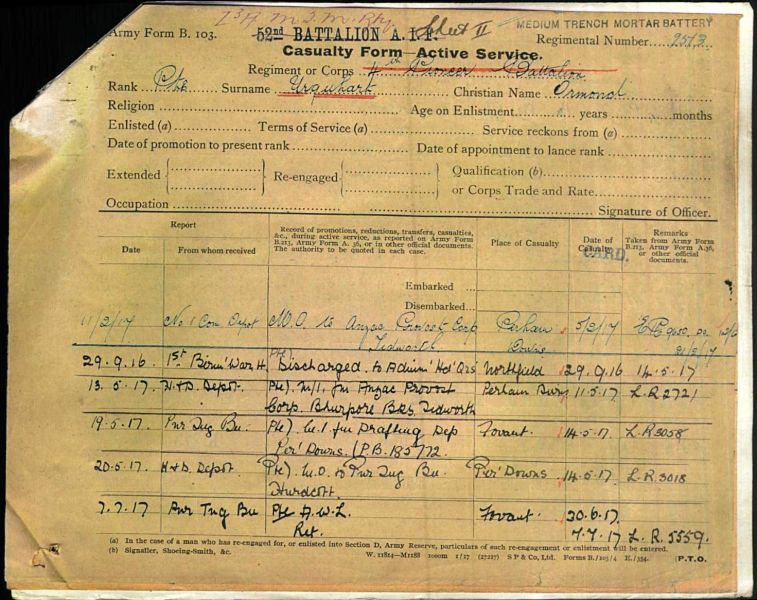 Sheet II
MEDIUM TRENCH MORTAR BATTERY
Army Form B. 103.
52nd BATTALION A.I.F.
Regimental Number 2513
Casualty Form—Active Service.
Regiment or Corps 4th Pioneer Battalion
Rank Pte Surname Urquhart Christian Name Ormond
Religion Age on Enlistment years months
Enlisted (a) Terms of Service (a) Service reckons from (a)
Date of promotion to present rank Date of appointment to lance rank
Extended Re-engaged Qualification (b)
or Corps Trade and Rate
Occupation Signature of Officer.
Report
Date
From whom received
Record of promotions, reductions, transfers, casualties, &c., during active service, as reported on Army Form B.213, Army Form A. 36, or in other official documents. The authority to be quoted in each case.
Place of Casualty
Date of Casualty
CARD.
Remarks
Taken from Army Form B.213, Army Form A.36, or other official documents.
Embarked
Disembarked
11/2/17 No 1 Con Depot M.O. to Anzac Provost Corp Perham 5/2/17
Tidworth Downs
29.9.16 1st Birm' War H. Discharged to Admin' Hd' Qrs Northfield 29.9.16 14.5.17
13.5.17 H&D. Depot. Pte). M/I. fm Anzac Provost Perham 11.5.17 L.R 2721
Corp. Bhurpore Bks. Tidworth
19.5.17 Pnr Tng Bn. Pte). M.I fm Drafting Dep Fovant 14.5.17. L.R 3058
Per' Downs. (P.B. 185772.
20.5.17. H&D. Depot. Pte). M.O. to Pnr Tng Bn. Per' Downs 14.5.17 L.R. 3018
Hurdcott.
7.7.17 Pnr Tng Bn Pte A.W.L. Fovant 30.6.17.
Ret. 7.7.17 L.R. 5559.
(a) In the case of a man who has re-engaged for, or enlisted into Section D, Army Reserve, particulars of such re-engagement or enlistment will be entered.
(b) Signaller, Shoeing-Smith, &c.
W. 11814—M1188 1000m 1/17 (27227) S P & Co., Ltd. Forms B./103/4 E./354.
[P.T.O.